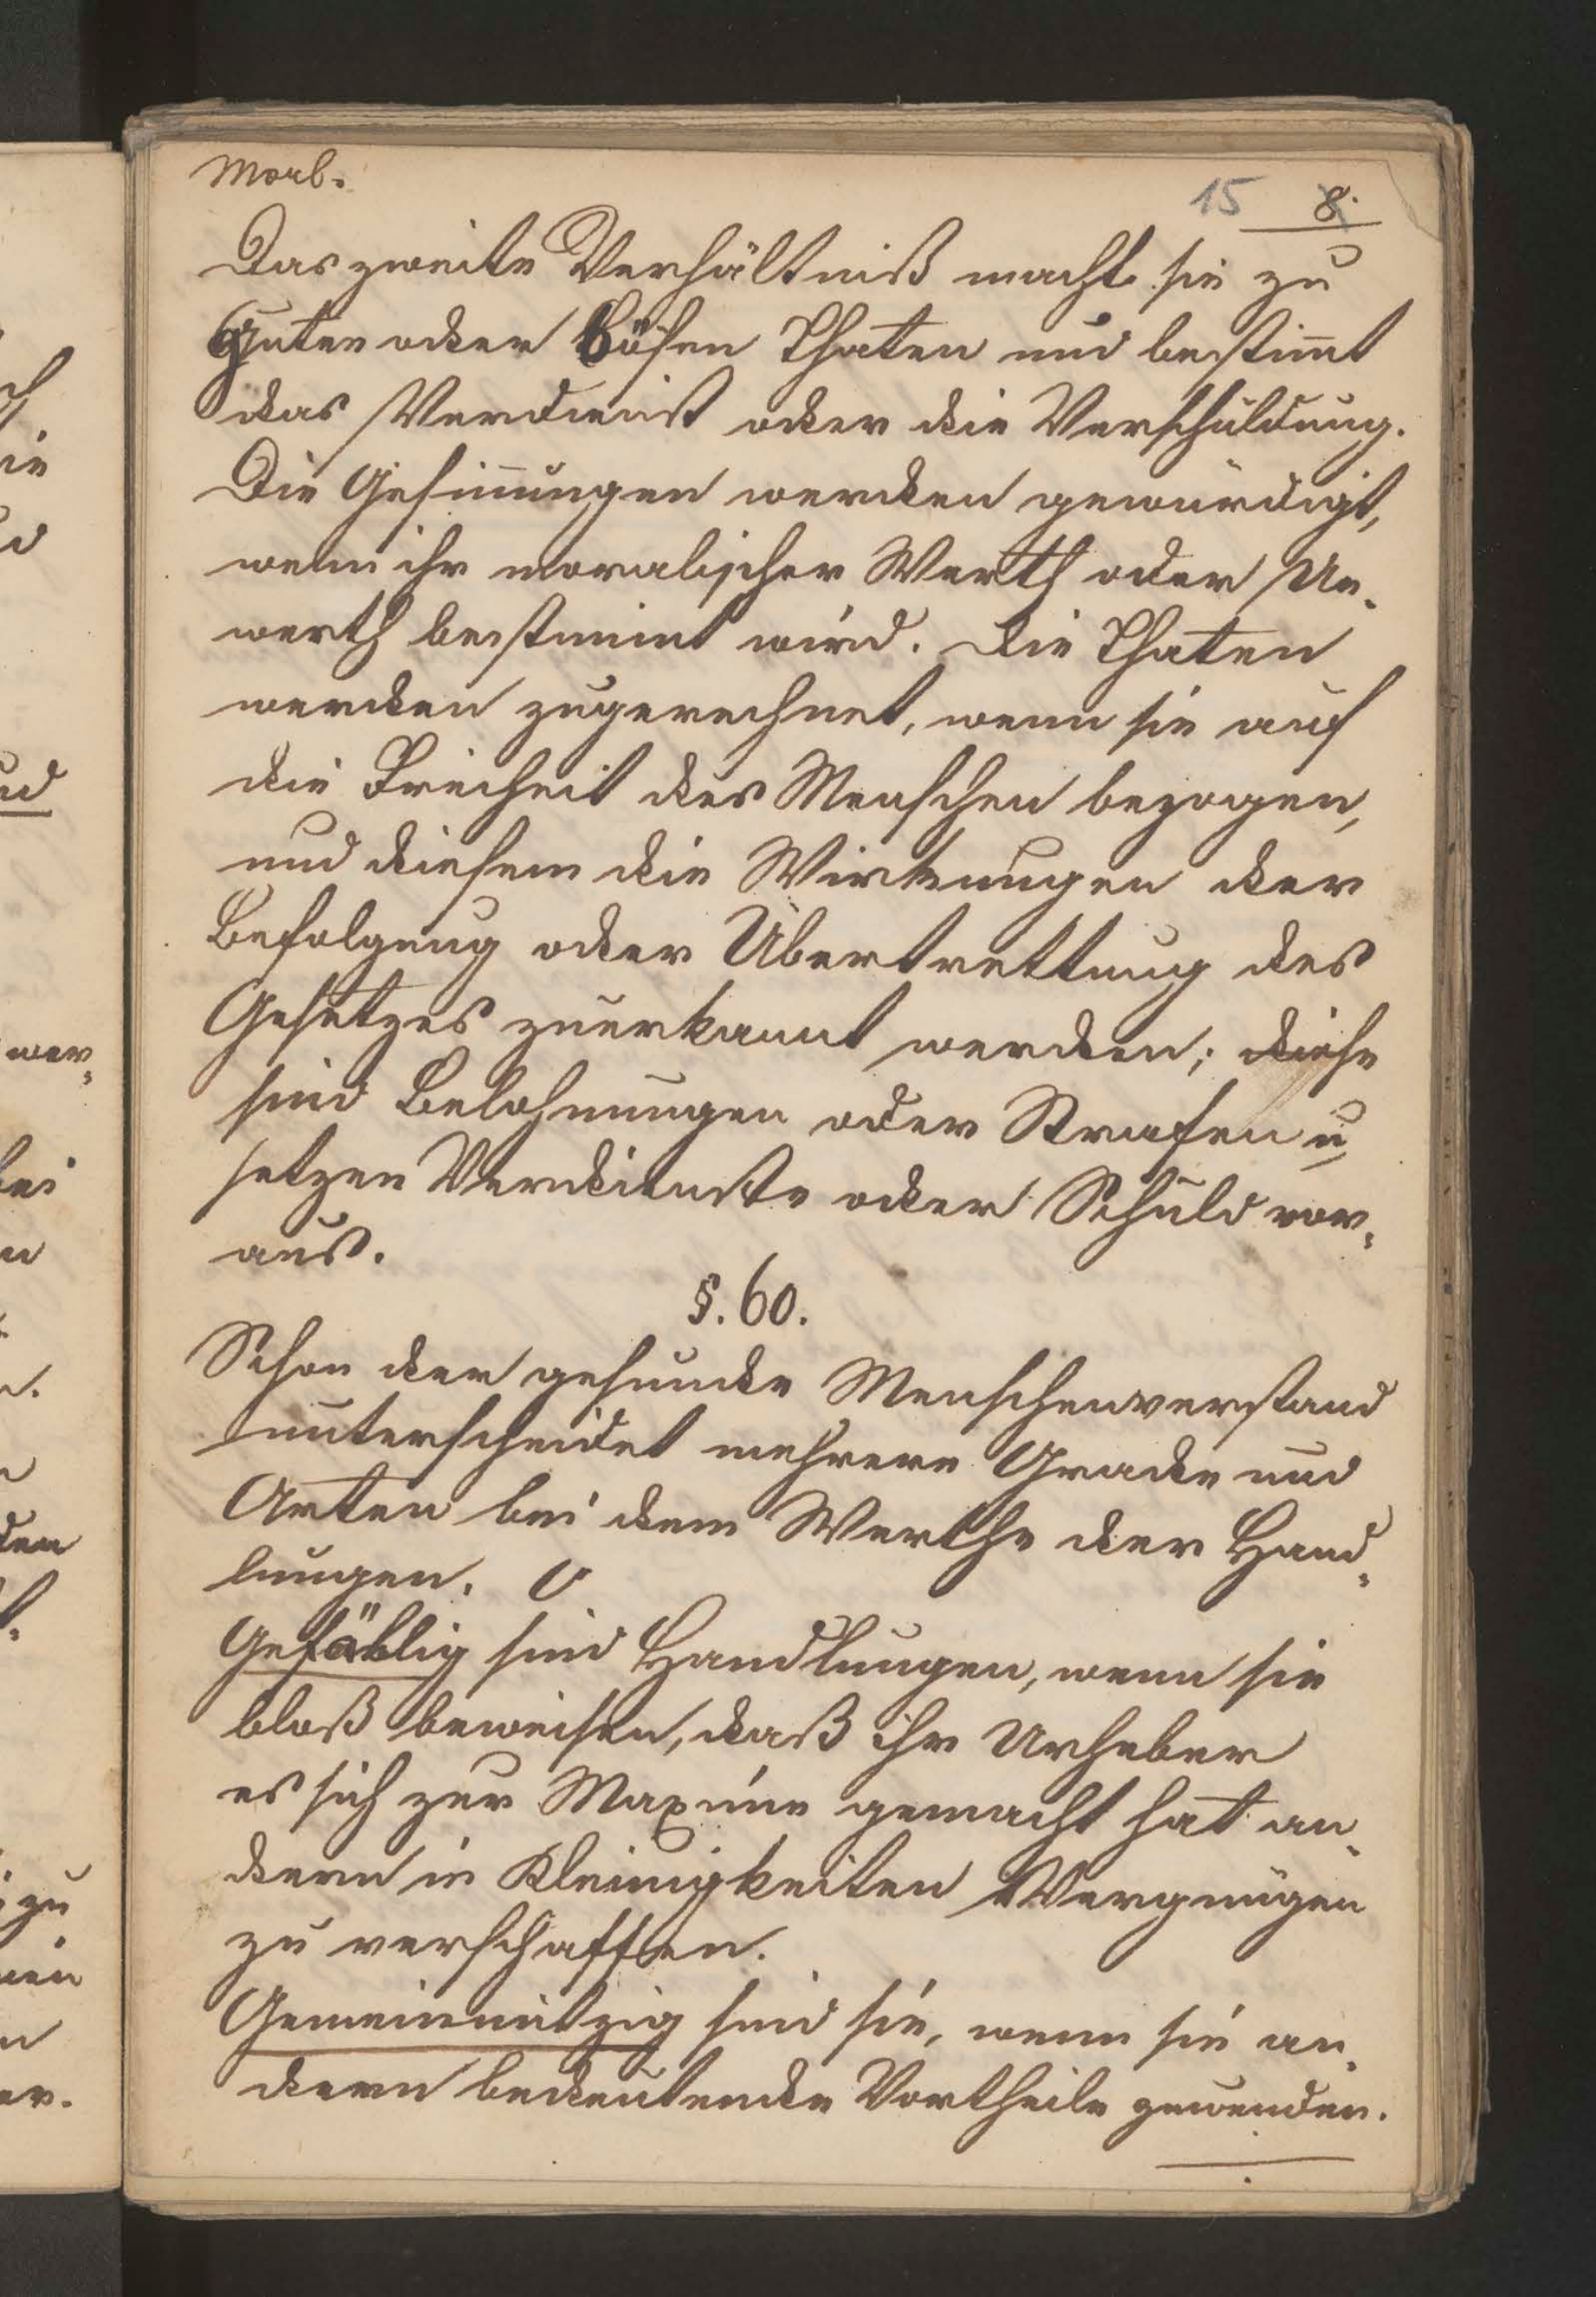 Morl.
15 8.
Das zweite Verhältniß macht sie zu
guten oder bösen Thaten und bestim̅t
das Verdienst oder die Verschuldung.
Die Gesin̅ungen werden gewürdigt,
wenn ihr moralischer Werth oder Un-
werth bestimmt wird. Die Thaten
werden zugerechnet, wenn sie auf
die Freiheit des Menschen bezogen,
und diesem die Wirkungen der
Befolgung oder Übertrettung des
Gesetzes zuerkannt werden; diese
sind Belohnungen oder Strafen u.
setzen Verdienste oder Schuld vor-
aus.
§. 60.
Schon der gesunde Menschenverstand
unterscheidet mehrere Grade und
Arten bei dem Werthe der Hand-
lungen.
Gefällig sind Handlungen, wenn sie
bloß beweisen, daß ihr Urheber
es sich zur Maxime gemacht hat an-
dern in Kleinigkeiten Vergnügen
zu verschaffen.
Gemeinnützig sind sie, wenn sie an-
dern bedeutende Vortheile zuwenden.
ud
wer-
bei
den
zu
nen
er.